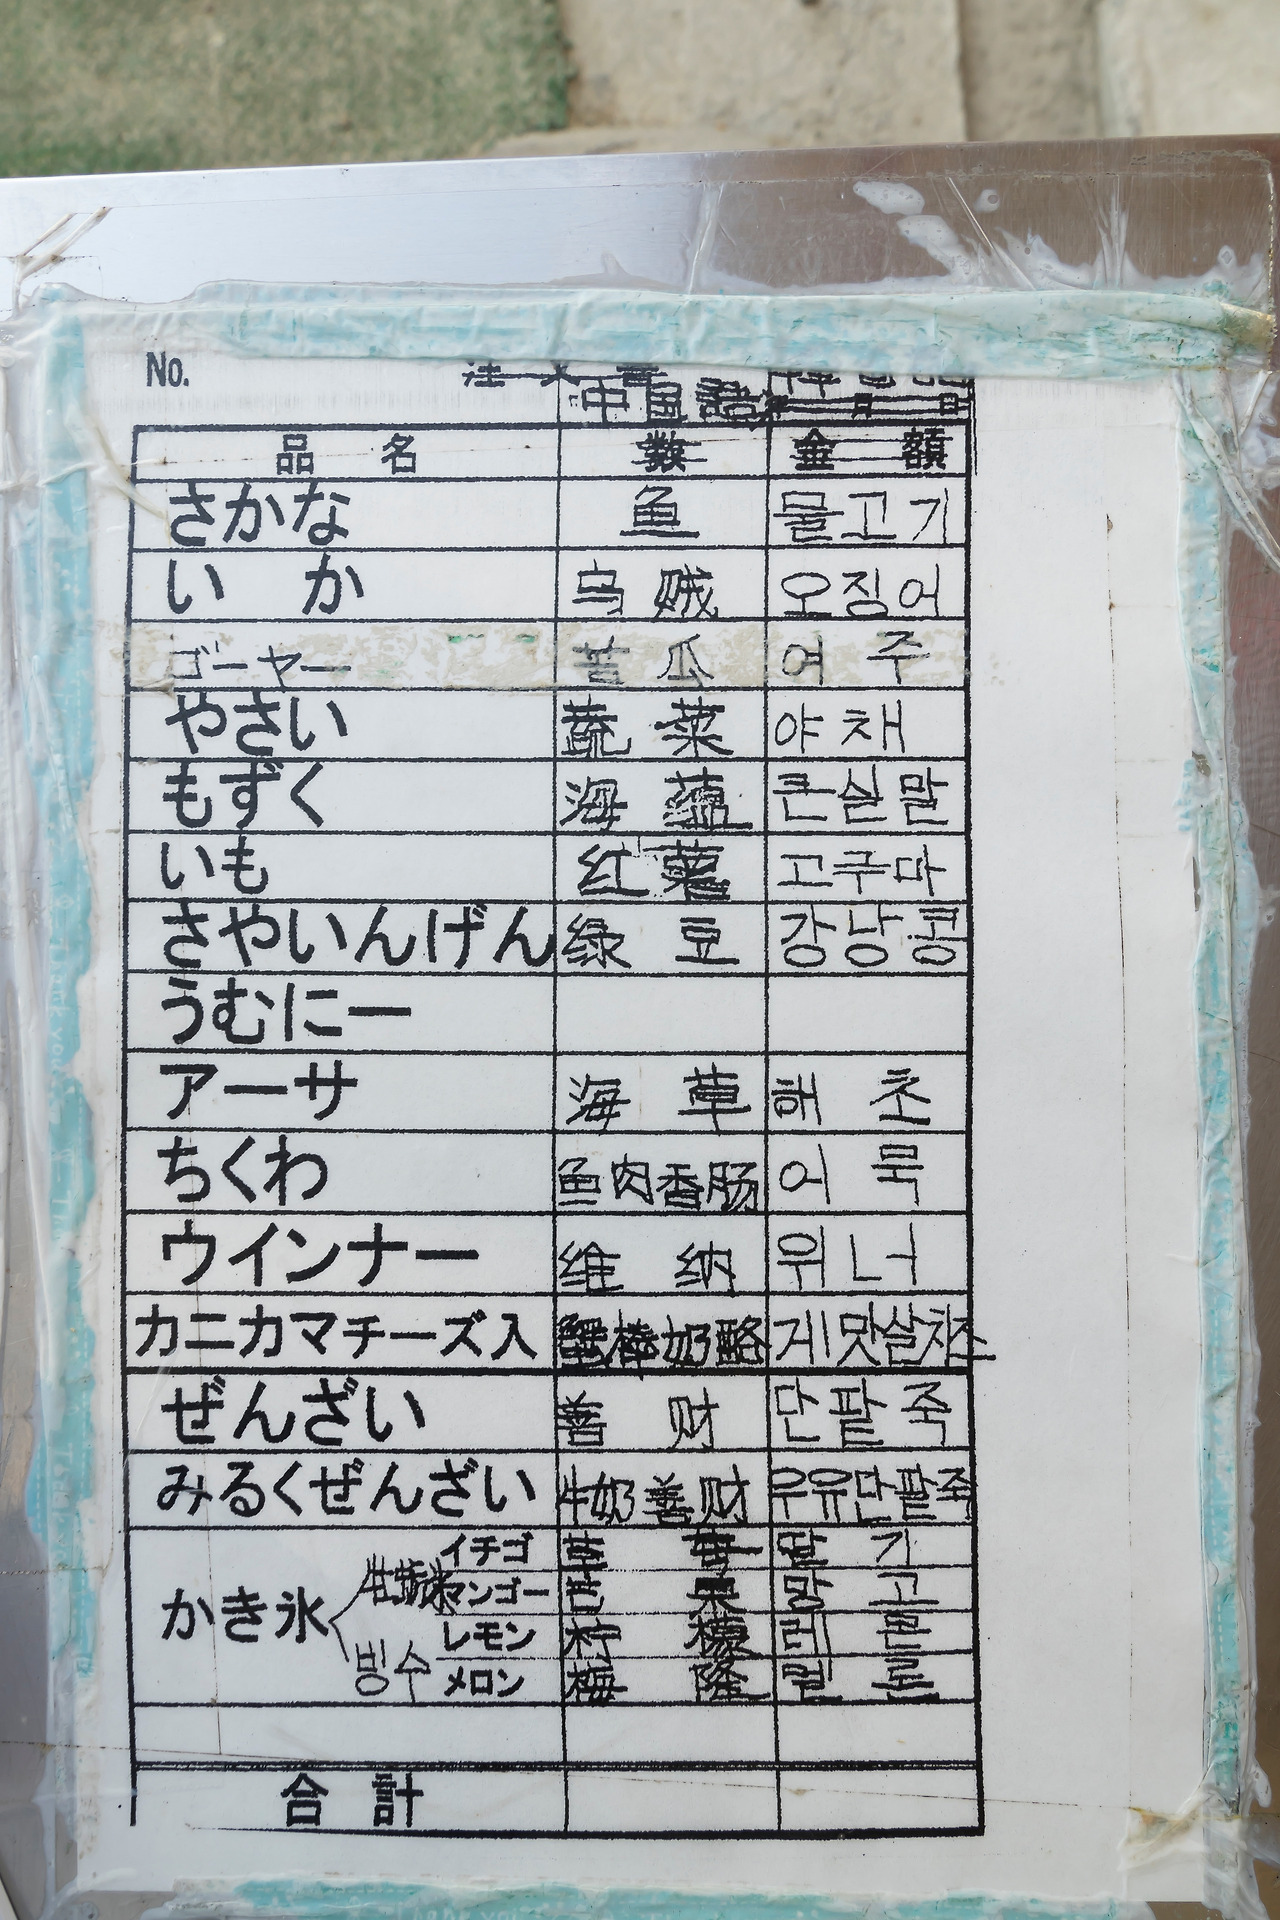 No. 注文書
中国語 韓国語
品名 数 金額
さかな 鱼 물고기
いか 乌贼 오징어
ゴーヤー 苦瓜 여주
やさい 蔬菜 야채
もずく 海蕴 큰실말
いも 红薯 고구마
さやいんげん 绿豆 강낭콩
うむにー
アーサ 海草 해초
ちくわ 鱼肉香肠 어묵
ウインナー 维纳 위너
カニカマチーズ入 蟹棒奶酪 게맛살치즈
ぜんざい 善财 단팥죽
みるくぜんざい 牛奶善财 우유단팥죽
かき氷 빙수
イチゴ 草莓 딸기
マンゴー 芒果 망고
レモン 柠檬 레몬
メロン 梅隆 멜론
合計